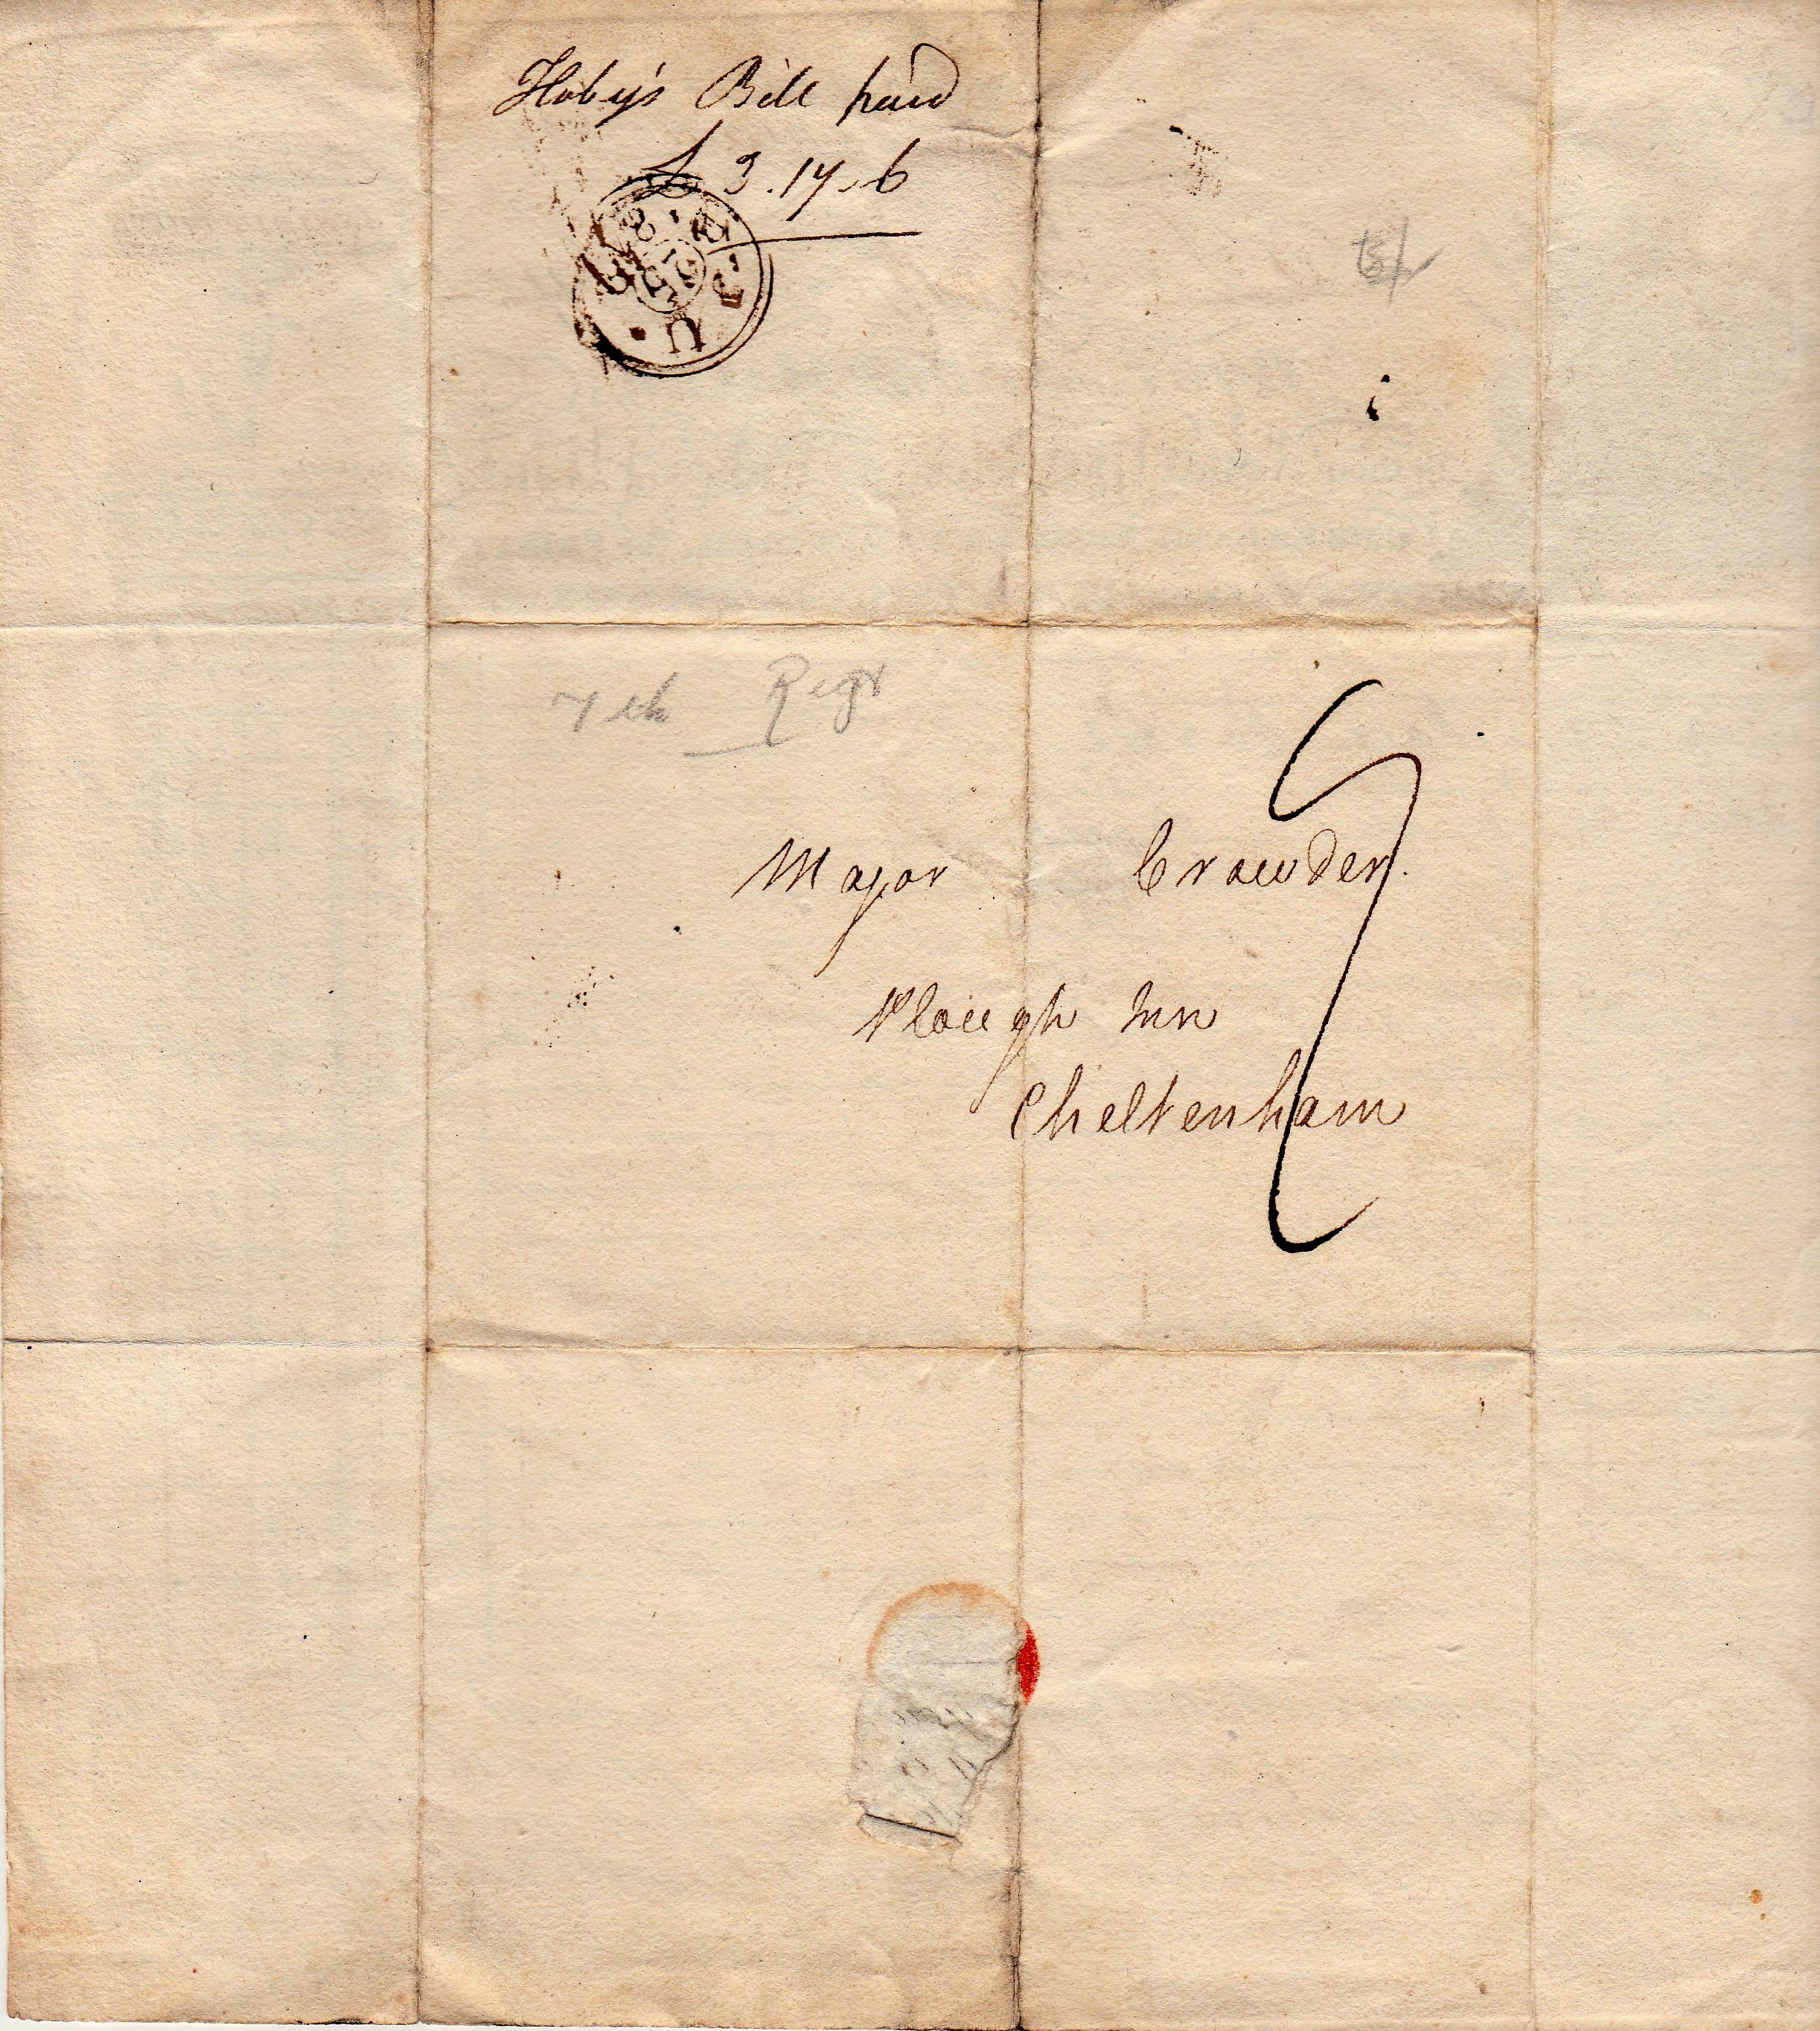 Hoby's Bill paid
£ 3.17.6
7th Regt
Major Crowder.
Plough Inn
Cheltenham